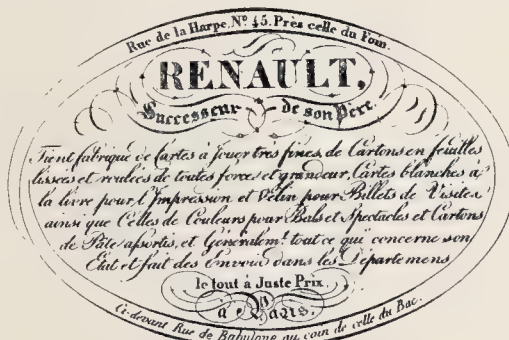 Rue de la Harpe, Nº 45. Près celle du Foin.
RENAULT,
Successeur de son Père.
Tient fabrique de Cartes à jouer très fines, de Cartons en feuilles
lissées et roulées de toutes forces et grandeur, Cartes blanches à
la livre pour l'Impression et Vélin pour Billets de Visites
ainsi que Celles de Couleurs pour Bals et Spectacles et Cartons
de Pâte assortis, et Généralemt. tout ce qui concerne son
Etat et fait des Envois dans les Départemens,
le tout à Juste Prix.
à Paris.
Ci-devant Rue de Babylone au coin de celle du Bac.